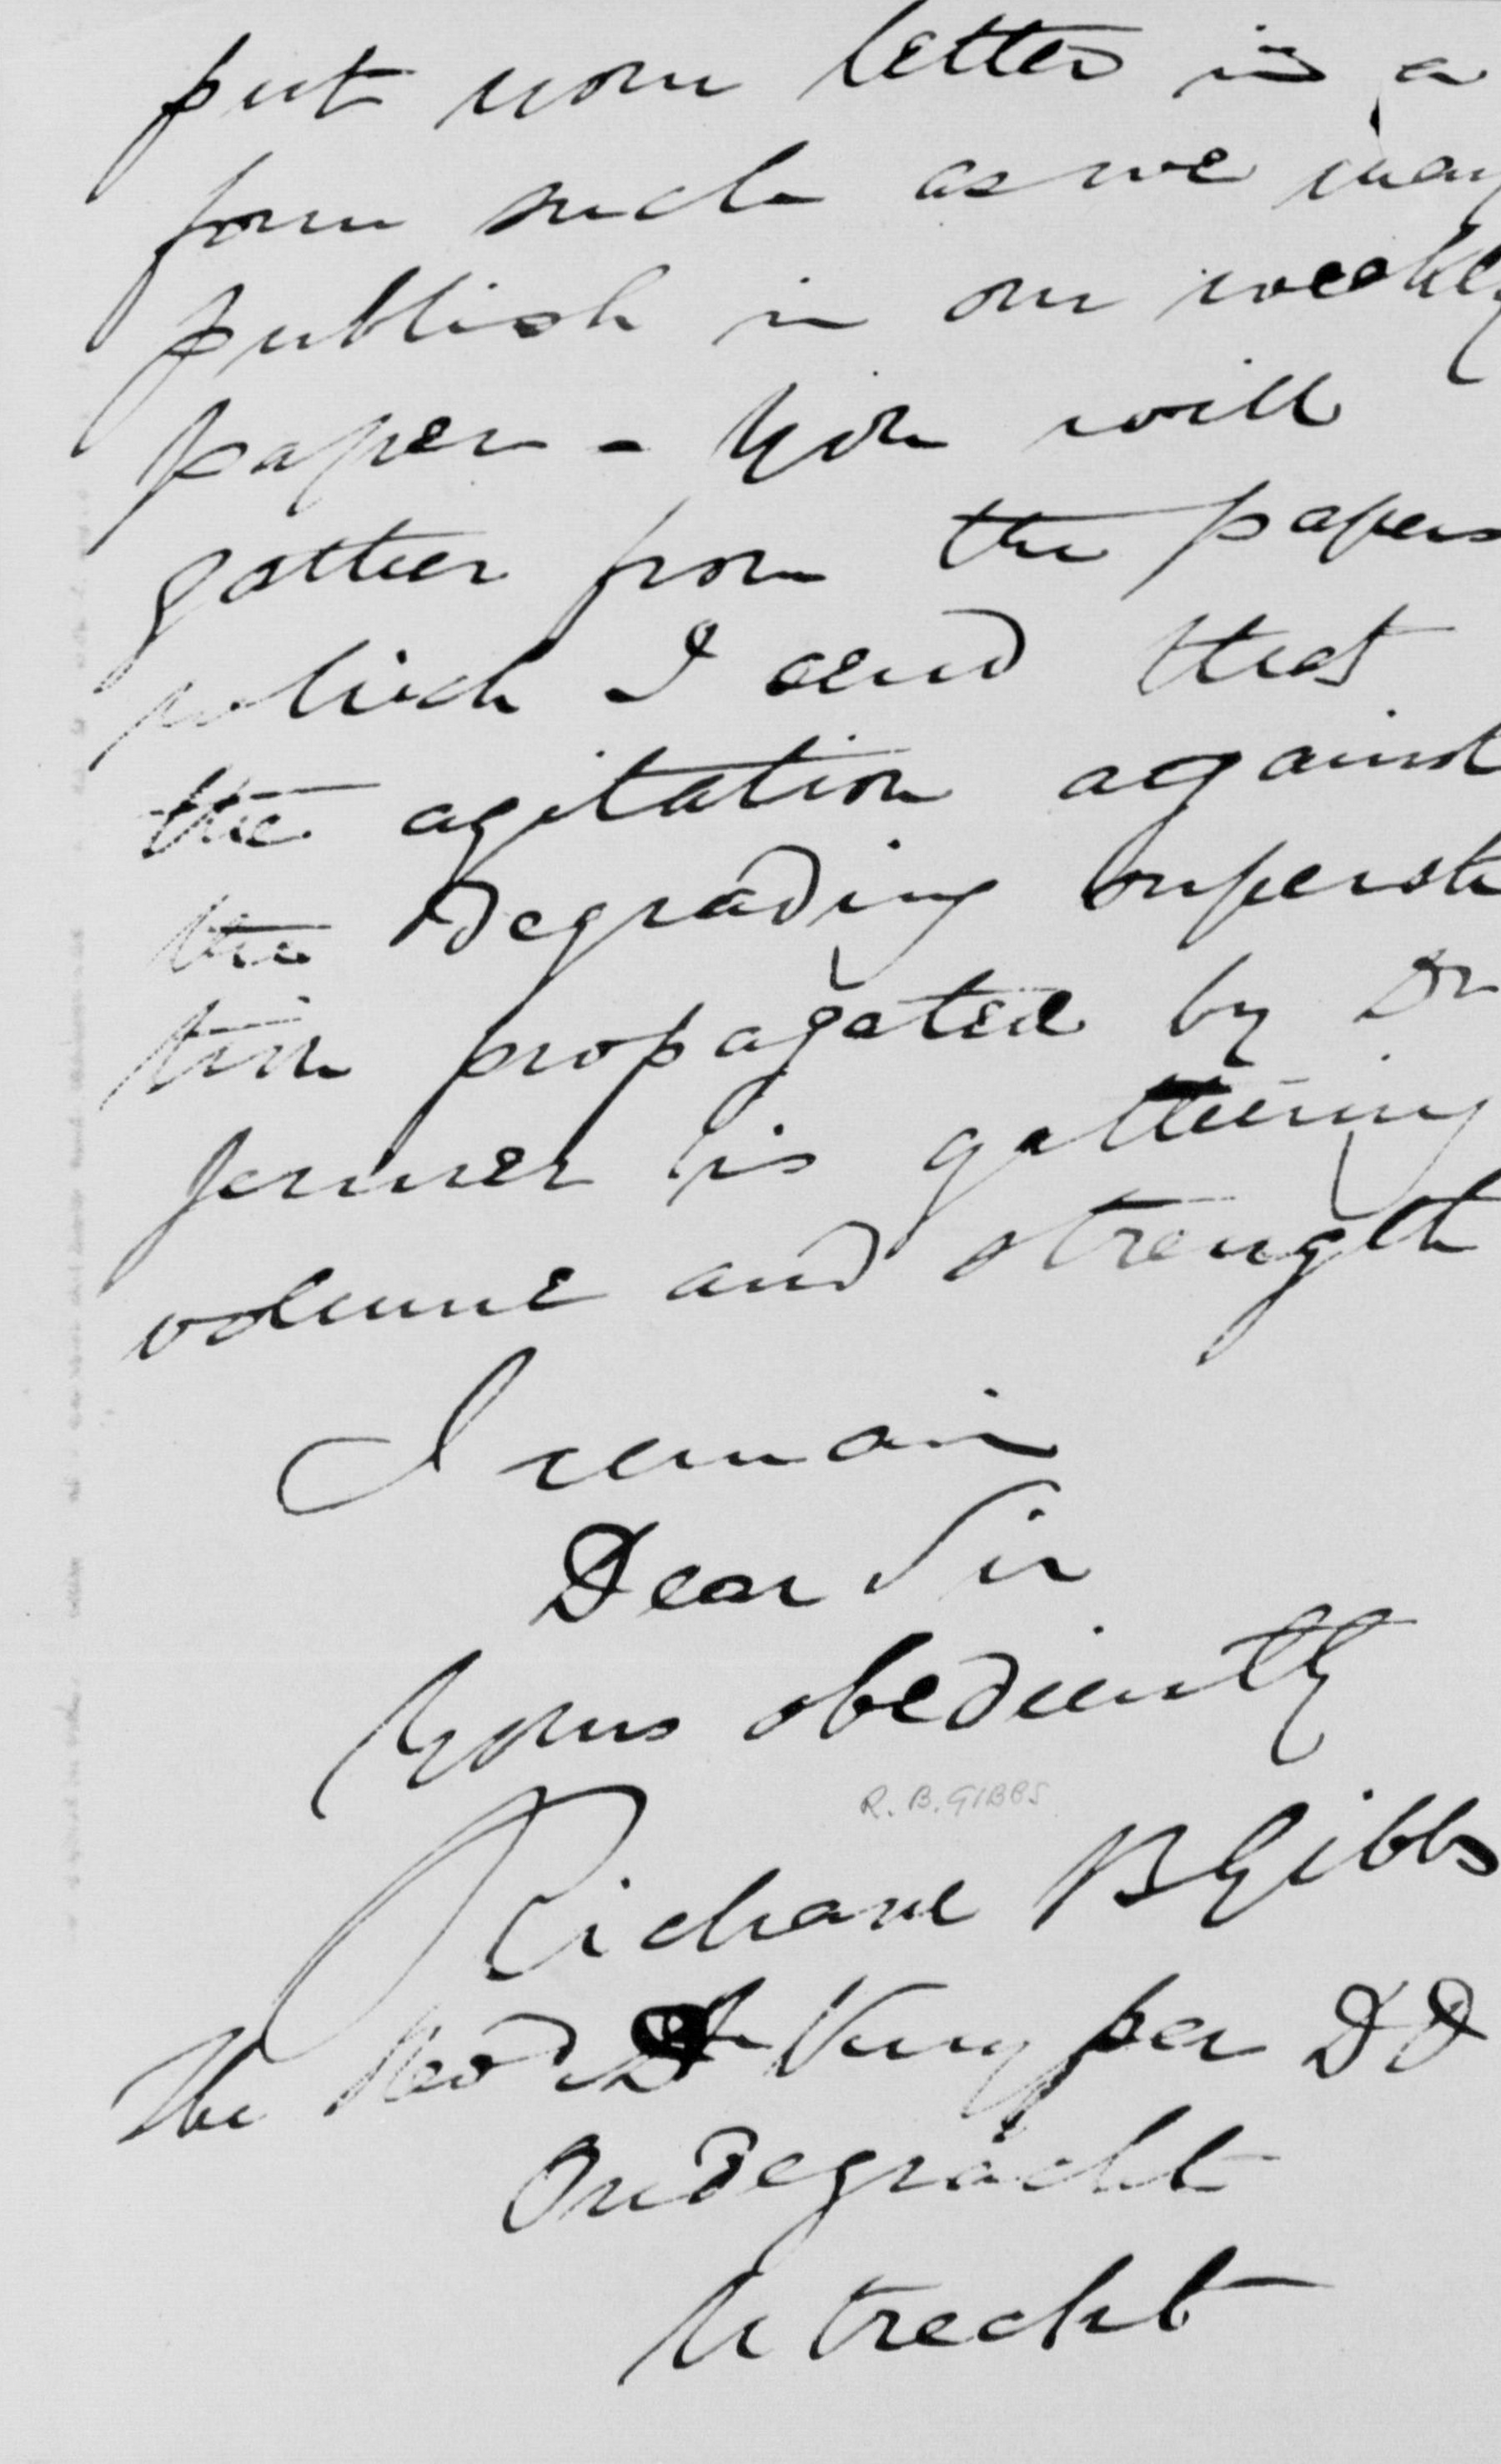 put your letter in a
form such as we may
publish in our weekly
paper - You will
gather from the papers
which I send that
the agitation against
the degrading supersti
tion propagated by Dr
Jenner is gathering
volume and strength
I remain
Dear Sir
Yours obediently
R. B. GIBBS
Richard B Gibbs
The Revd Dr Kuyper DD
Oudegracht
Utrecht